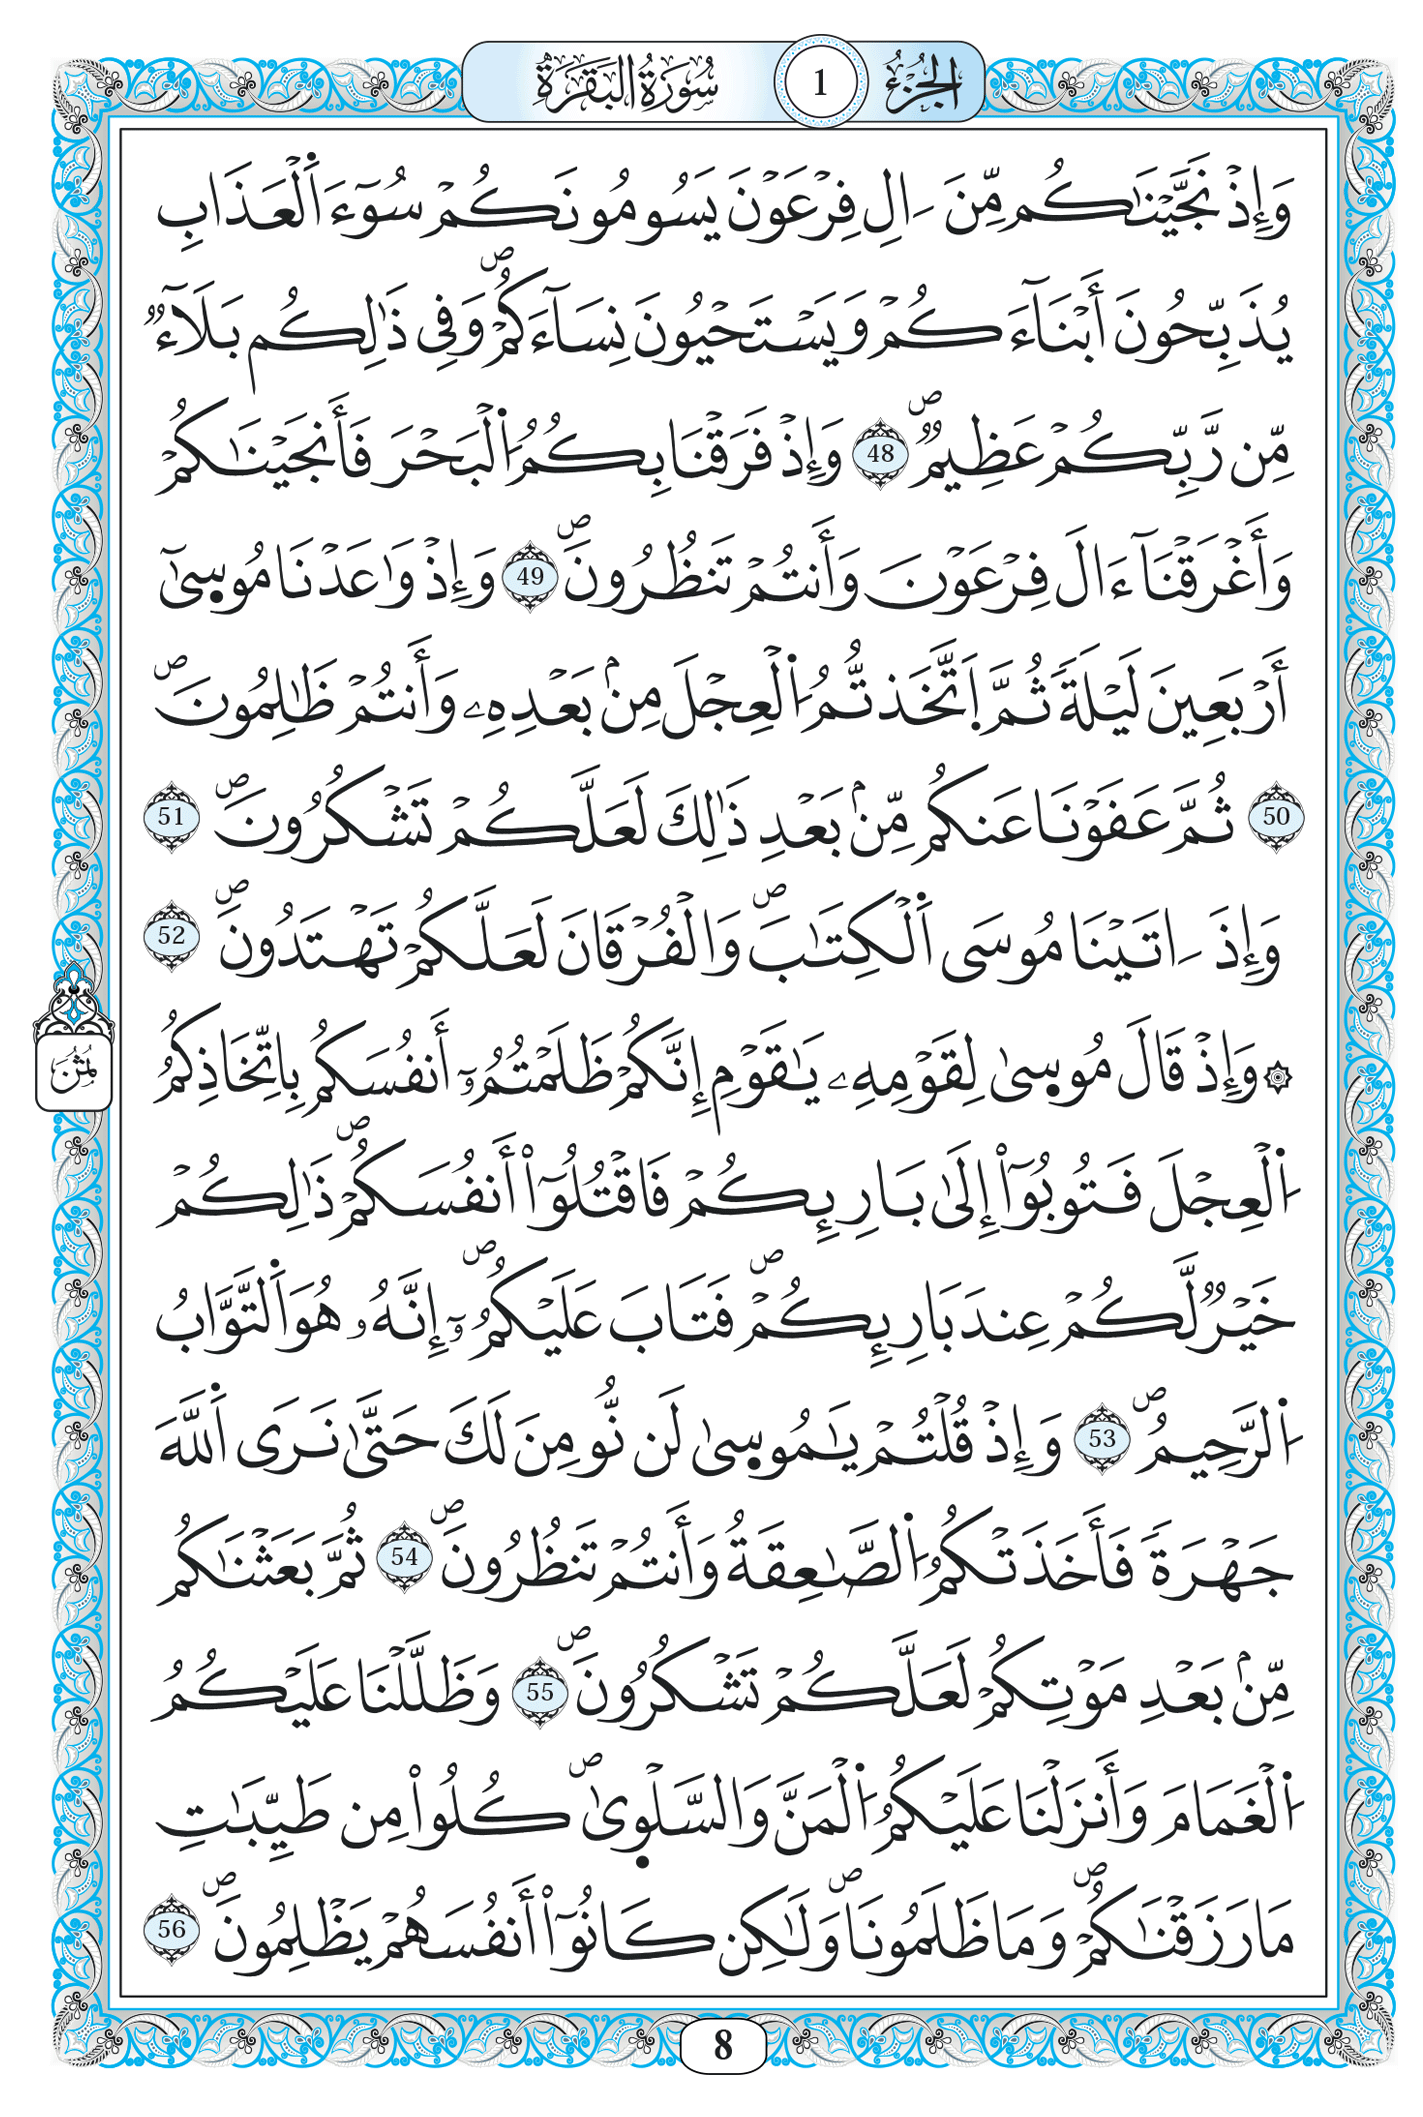 الجزء 1 سورة البقرة
وَإِذْ نَجَّيْنَٰكُم مِّنَ ـَالِ فِرْعَوْنَ يَسُومُونَكُمْ سُوٓءَ اَ۬لْعَذَابِ
يُذَبِّحُونَ أَبْنَآءَكُمْ وَيَسْتَحْيُونَ نِسَآءَكُمْۖ وَفِي ذَٰلِكُم بَلَآءٞ
مِّن رَّبِّكُمْ عَظِيمٞۖ 48 وَإِذْ فَرَقْنَا بِكُمُ اُ۬لْبَحْرَ فَأَنجَيْنَٰكُمْ
وَأَغْرَقْنَآ ءَالَ فِرْعَوْنَ وَأَنتُمْ تَنظُرُونَۖ 49 وَإِذْ وَٰعَدْنَا مُوس۪ىٰٓ
أَرْبَعِينَ لَيْلَةٗ ثُمَّ اَ۪تَّخَذتُّمُ اُ۬لْعِجْلَ مِنۢ بَعْدِهِۦ وَأَنتُمْ ظَٰلِمُونَۖ
50 ثُمَّ عَفَوْنَا عَنكُم مِّنۢ بَعْدِ ذَٰلِكَ لَعَلَّكُمْ تَشْكُرُونَۖ 51
وَإِذَ ـاتَيْنَا مُوسَى اَ۬لْكِتَٰبَۖ وَالْفُرْقَانَ لَعَلَّكُمْ تَهْتَدُونَۖ 52
۞ وَإِذْ قَالَ مُوس۪ىٰ لِقَوْمِهِۦ يَٰقَوْمِ إِنَّكُمْ ظَلَمْتُمُۥٓ أَنفُسَكُم بِاتِّخَاذِكُمُ
اُ۬لْعِجْلَ فَتُوبُوٓاْ إِلَىٰ بَارِئِكُمْ فَاقْتُلُوٓاْ أَنفُسَكُمْۖ ذَٰلِكُمْ
خَيْرٞ لَّكُمْ عِندَ بَارِئِكُمْۖ فَتَابَ عَلَيْكُمُۥٓۖ إِنَّهُۥ هُوَ اَ۬لتَّوَّابُ
اُ۬لرَّحِيمُۖ 53 وَإِذْ قُلْتُمْ يَٰمُوس۪ىٰ لَن نُّومِنَ لَكَ حَتَّىٰ نَرَى اَ۬للَّهَ
جَهْرَةٗ فَأَخَذَتْكُمُ اُ۬لصَّٰعِقَةُ وَأَنتُمْ تَنظُرُونَۖ 54 ثُمَّ بَعَثْنَٰكُم
مِّنۢ بَعْدِ مَوْتِكُمْ لَعَلَّكُمْ تَشْكُرُونَۖ 55 وَظَلَّلْنَا عَلَيْكُمُ
اُ۬لْغَمَامَ وَأَنزَلْنَا عَلَيْكُمُ اُ۬لْمَنَّ وَالسَّلْو۪ىٰۖ كُلُواْ مِن طَيِّبَٰتِ
مَا رَزَقْنَٰكُمْۖ وَمَا ظَلَمُونَاۖ وَلَٰكِن كَانُوٓاْ أَنفُسَهُمْ يَظْلِمُونَۖ 56
ثُمُن
8